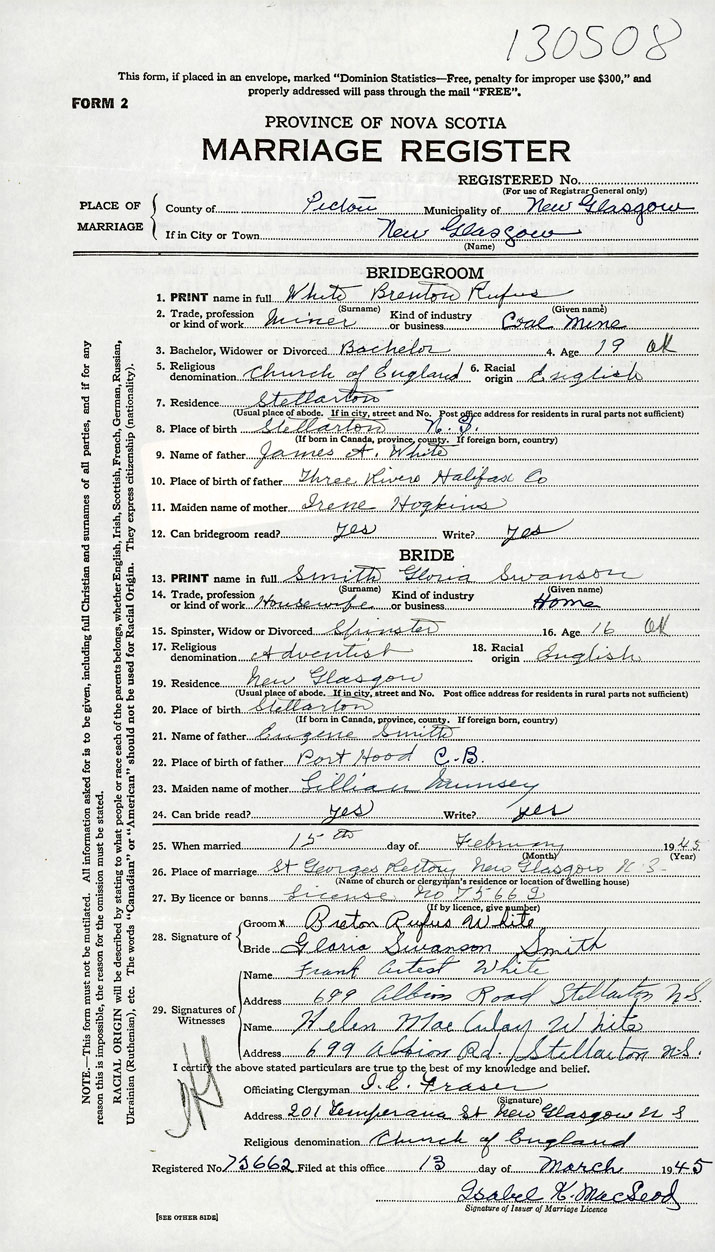 130508
This form, if placed in an envelope, marked "Dominion Statistics—Free, penalty for improper use $300," and
properly addressed will pass through the mail "FREE".
FORM 2
PROVINCE OF NOVA SCOTIA
MARRIAGE REGISTER
REGISTERED No.
(For use of Registrar General only)
PLACE OF MARRIAGE
County of Pictou Municipality of New Glasgow
If in City or Town New Glasgow
(Name)
BRIDEGROOM
1. PRINT name in full White Brenton Rufus
(Surname) (Given name)
2. Trade, profession or kind of work Miner Kind of industry or business Coal Mine
3. Bachelor, Widower or Divorced Bachelor 4. Age 19 OK
5. Religious denomination Church of England 6. Racial origin English
7. Residence Stellarton
(Usual place of abode. If in city, street and No. Post office address for residents in rural parts not sufficient)
8. Place of birth Stellarton N.S.
(If born in Canada, province, county. If foreign born, country)
9. Name of father James A. White
10. Place of birth of father Three Rivers Halifax Co
11. Maiden name of mother Irene Hogkins
12. Can bridegroom read? yes Write? yes
BRIDE
13. PRINT name in full Smith Gloria Swanson
(Surname) (Given name)
14. Trade, profession or kind of work Housewife Kind of industry or business Home
15. Spinster, Widow or Divorced Spinster 16. Age 16 OK
17. Religious denomination Adventist 18. Racial origin English
19. Residence New Glasgow
(Usual place of abode. If in city, street and No. Post office address for residents in rural parts not sufficient)
20. Place of birth Stellarton
(If born in Canada, province, county. If foreign born, country)
21. Name of father Eugene Smith
22. Place of birth of father Port Hood C.B.
23. Maiden name of mother Lillian
24. Can bride read? yes Write? yes
25. When married 15th day of February 1945
(Month) (Year)
26. Place of marriage St Georges Rectory New Glasgow N.S.
(Name of church or clergyman's residence or location of dwelling house)
27. By licence or banns License No 75662
(If by licence, give number)
28. Signature of
Groom x Breton Rufus White
Bride Gloria Swanson Smith
29. Signatures of Witnesses
Name Frank White
Address 699 Albion Road Stellarton N.S.
Name Helen MacAulay White
Address 699 Albion Rd. Stellarton N.S.
I certify the above stated particulars are true to the best of my knowledge and belief.
Officiating Clergyman Fraser
(Signature)
Address 201 Temperance St New Glasgow N S
Religious denomination Church of England
Registered No. 75662 Filed at this office 13 day of March 1945
Isabel K. MacLeod
Signature of Issuer of Marriage Licence
[SEE OTHER SIDE]
NOTE.—This form must not be mutilated. All information asked for is to be given, including full Christian and surnames of all parties, and if for any
reason this is impossible, the reason for the omission must be stated.
RACIAL ORIGIN will be described by stating to what people or race each of the parents belongs, whether English, Irish, Scottish, French, German, Russian,
Ukrainian (Ruthenian), etc. The words "Canadian" or "American" should not be used for Racial Origin. They express citizenship (nationality).